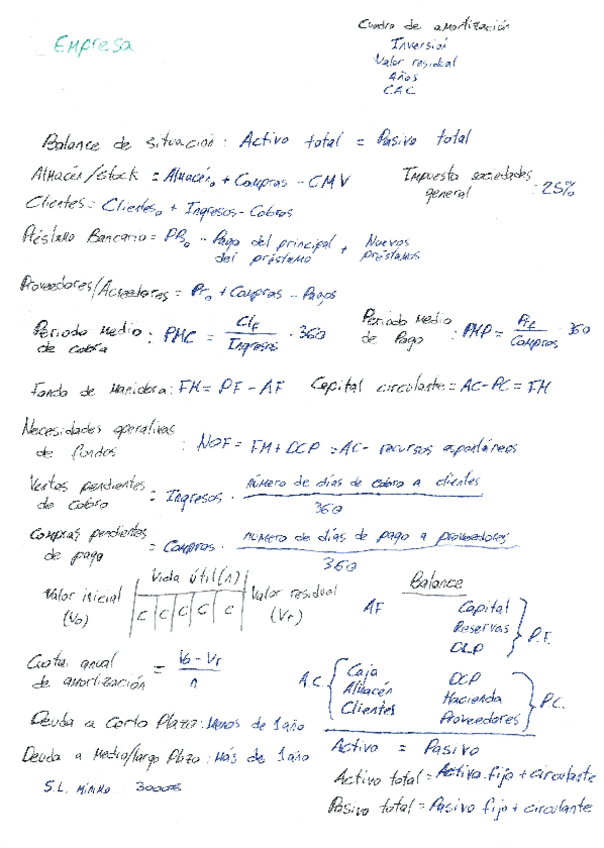 Empresa
Cuadro de amortización
Inversión
Valor residual
Años
C.A.C
Balance de situación: Activo total = Pasivo total
Almacén/Stock = Almacén₀ + Compras - CMV
Impuesto sociedades general : 25%
Clientes = Clientes₀ + Ingresos - Cobros
Préstamo Bancario = PB₀ - Pago del principal del préstamo + Nuevos préstamos
Proveedores/Acreedores = Pr₀ + Compras - Pagos
Periodo medio de cobro : PMC = Cl_F / Ingresos · 360
Periodo medio de pago : PMP = Pr_F / Compras · 360
Fondo de Maniobra: FM = PF - AF
Capital circulante = AC - PC = FM
Necesidades operativas de fondos : NOF = FM + DCP = AC - recursos espontáneos
Ventas pendientes de cobro = Ingresos · número de días de cobro a clientes / 360
Compras pendientes de pago = Compras · número de días de pago a proveedores / 360
Valor inicial (V₀)
Vida útil (n)
C C C C C
Valor residual (Vr)
Cuota anual de amortización = V₀ - Vr / n
Deuda a Corto Plazo: Menos de 1 año
Deuda a Medio/largo Plazo: Más de 1 año
S.L. mínimo 3000€
Balance
AF
Capital
Reservas
DLP
P.F.
A.C.
Caja
Almacén
Clientes
DCP
Hacienda
Proveedores
P.C.
Activo = Pasivo
Activo total = Activo fijo + circulante
Pasivo total = Pasivo fijo + circulante